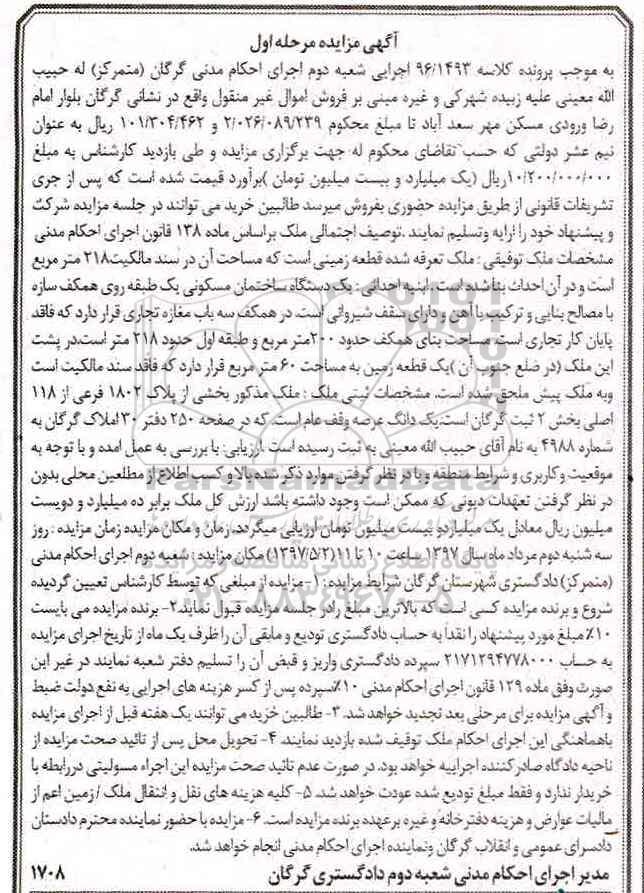 آگهی مزایده مرحله اول
به موجب پرونده کلاسه ۹۶/۱۴۹۳ اجرایی شعبه دوم اجرای احکام مدنی گرگان (متمرکز) له حبیب
الله معینی علیه زبیده شهرکی و غیره مبنی بر فروش اموال غیر منقول واقع در نشانی گرگان بلوار امام
رضا ورودی مسکن مهر سعد آباد تا مبلغ محکوم ۲/۰۲۶/۰۸۹/۲۳۹ و ۱۰۱/۳۰۴/۴۶۲ ریال به عنوان
نیم عشر دولتی که حسب تقاضای محکوم له جهت برگزاری مزایده و طی بازدید کارشناس به مبلغ
۱۰/۲۰۰/۰۰۰/۰۰۰ریال (یک میلیارد و بیست میلیون تومان )برآورد قیمت شده است که پس از جری
تشریفات قانونی از طریق مزایده حضوری بفروش میرسد طالبین خرید می توانند در جلسه مزایده شرکت
و پیشنهاد خود را ارایه وتسلیم نمایند .توصیف اجتمالی ملک براساس ماده ۱۳۸ قانون اجرای احکام مدنی
مشخصات ملک توقیفی : ملک تعرفه شده قطعه زمینی است که مساحت آن در سند مالکیت۲۱۸ متر مربع
است و در آن احداث بنا شده است. ابنیه احداثی : یک دستگاه ساختمان مسکونی یک طبقه روی همکف سازه
با مصالح بنایی و ترکیب با آهن و دارای سقف شیروانی است. در همکف سه باب مغازه تجاری قرار دارد که فاقد
پایان کار تجاری است. مساحت بنای همکف حدود ۲۰۰متر مربع و طبقه اول حدود ۲۱۸ متر است.در پشت
این ملک (در ضلع جنوب آن )یک قطعه زمین به مساحت ۶۰ متر مربع قرار دارد که فاقد سند مالکیت است
وبه ملک پیش ملحق شده است. مشخصات ثبتی ملک : ملک مذکور بخشی از پلاک ۱۸۰۲ فرعی از ۱۱۸
اصلی بخش ۲ ثبت گرگان است.یک دانگ عرصه وقف عام است. که در صفحه ۲۵۰ دفتر ۳۰املاک گرگان به
شماره ۴۹۸۸ به نام آقای حبیب الله معینی به ثبت رسیده است .ارزیابی: با بررسی به عمل امده و با توجه به
موقعیت وکاربری و شرایط منطقه و با در نظر گرفتن موارد ذکر شده بالا و کسب اطلاع از مطلعین محلی بدون
در نظر گرفتن تعهدات دیونی که ممکن است وجود داشته باشد ارزش کل ملک برابر ده میلیارد و دویست
میلیون ریال معادل یک میلیارد و بیست میلیون تومان ارزیابی میگردد. زمان و مکان مزایده زمان مزایده : روز
سه شنبه دوم مرداد ماه سال ۱۳۹۷ ساعت ۱۰ تا ۱۱(۱۳۹۷/۵/۲) مکان مزایده : شعبه دوم اجرای احکام مدنی
(متمرکز) دادگستری شهرستان گرگان شرایط مزایده : ۱-مزایده از مبلغی که توسط کارشناس تعیین گردیده
شروع و برنده مزایده کسی است که بالاترین مبلغ رادر جلسه مزایده قبول نماید.۲- برنده مزایده می بایست
۱۰٪ مبلغ مورد پیشنهاد را نقدا به حساب دادگستری تودیع و مابقی آن را ظرف یک ماه از تاریخ اجرای مزایده
به حساب ۲۱۷۱۲۹۴۷۷۸۰۰۰ سپرده دادگستری واریز و قبض آن را تسلیم دفتر شعبه نمایند در غیر این
صورت وفق ماده ۱۲۹ قانون اجرای احکام مدنی ۱۰٪سپرده پس از کسر هزینه های اجرایی به نفع دولت ضبط
و آگهی مزایده برای مرحلی بعد تجدید خواهد شد. ۳- طالبین خرید می توانند یک هفته قبل از اجرای مزایده
باهماهنگی این اجرای احکام ملک توقیف شده بازدید نمایند. ۴- تحویل محل پس از تائید صحت مزایده از
ناحیه دادگاه صادر کننده اجراییه خواهد بود. در صورت عدم تائید صحت مزایده این اجراء مسولیتی دررابطه با
خریدار ندارد و فقط مبلغ تودیع شده عودت خواهد شد. ۵- کلیه هزینه های نقل و انتقال ملک / زمین اعم از
مالیات عوارض و هزینه دفترخانه و غیره بر عهده برنده مزایده است. ۶-مزایده با حضور نماینده محترم دادستان
دادسرای عمومی و انقلاب گرگان ونماینده اجرای احکام مدنی انجام خواهد شد.
مدیر اجرای احکام مدنی شعبه دوم دادگستری گرگان ۱۷۰۸